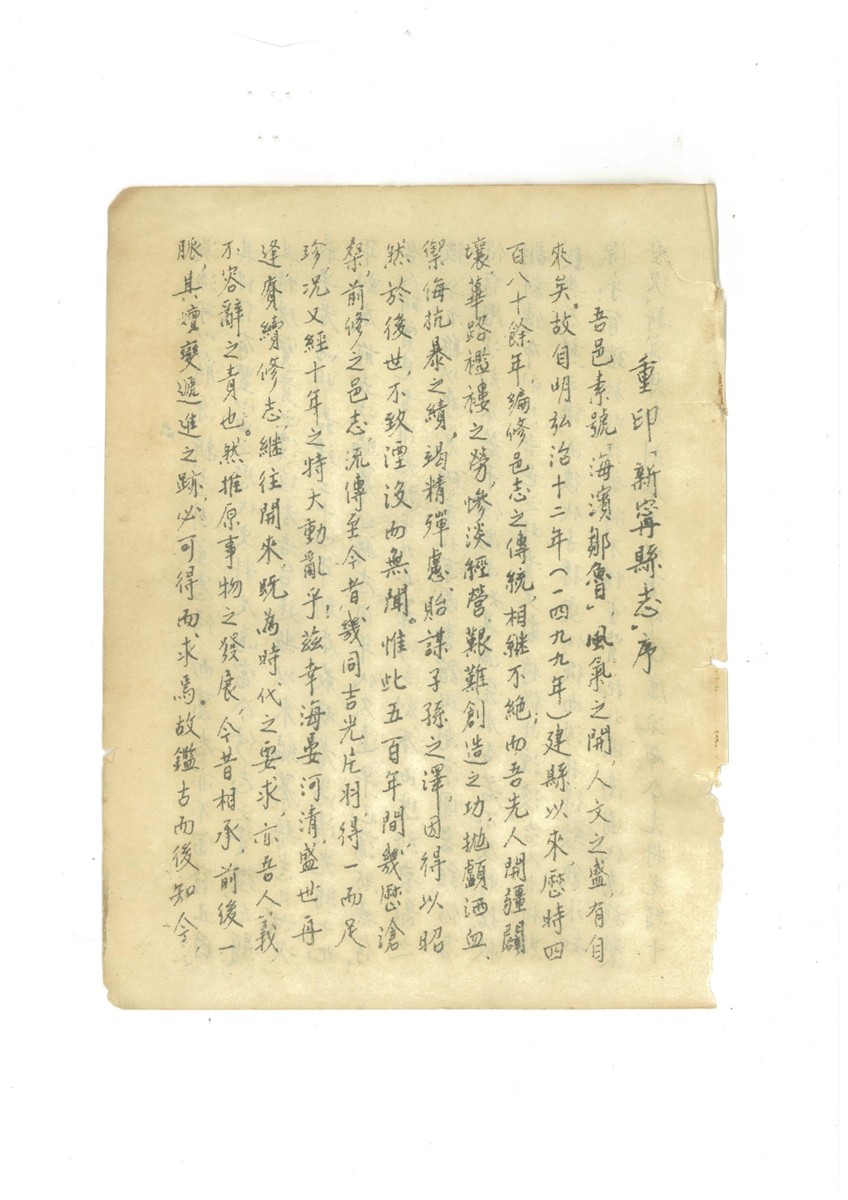 重印「新寧縣志」序
吾邑素號「海濱鄒魯」，風氣之開，人文之盛，有自
來矣。故自明弘治十二年（一四九九年）建縣以來，歷時四
百八十餘年，編修邑志之傳統，相繼不絕；而吾先人開疆闢
壤，蓽路襤褸之勞，慘淡經營、艱難創造之功，拋顱洒血、
禦侮抗暴之績，竭精殫慮、貽謀子孫之澤，因得以昭
然於後世，不致湮沒而無聞。惟此五百年間，幾歷滄
桑，前修之邑志，流傳至今者，幾同吉光片羽，得一而足
珍，況又經十年之特大動亂乎！茲幸海晏河清，盛世再
逢，賡續修志，繼往開來，既為時代之要求，亦吾人義
不容辭之責也。然推原事物之發展，今昔相承，前後一
脈，其嬗變遞進之跡，必可得而求焉。故鑑古而後知今，